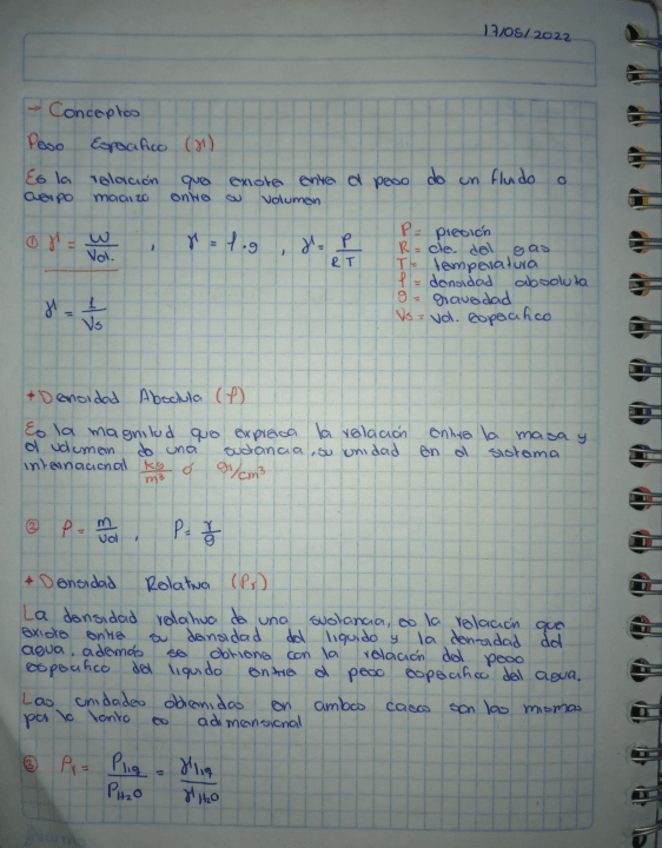 17/05/2022
→ Conceptos
Peso Específico (γ)
Es la relación que existe entre el peso de un fluido o
cuerpo macizo entre su volumen
① γ = W/Vol. , γ = ρ·g , γ = P/RT
P = presión
R = cte. del gas
T = temperatura
ρ = densidad absoluta
g = gravedad
Vs = vol. especifico
γ = 1/Vs
* Densidad Absoluta (ρ)
Es la magnitud que expresa la relación entre la masa y
el volumen de una sustancia, su unidad en el sistema
internacional kg/m³ ó gr/cm³
② ρ = m/vol , ρ = γ/g
* Densidad Relativa (ρr)
La densidad relativa de una sustancia, es la relación que
existe entre su densidad del liquido y la densidad del
agua, además se obtiene con la relación del peso
especifico del liquido entre el peso especifico del agua.
Las unidades obtenidas en ambos casos son las mismas
por lo tanto es adimensional
③ ρr = ρliq/ρH₂O = γliq/γH₂O